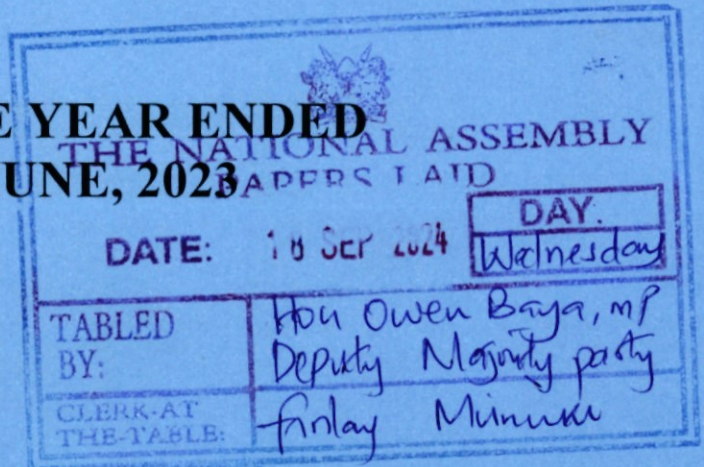 E YEAR ENDED
THE NATIONAL ASSEMBLY
UNE, 2023
PAPERS LAID
DATE: 18 SEP 2024
DAY.
Wednesday
TABLED BY:
Hon Owen Baya, MP
Deputy Majority party
CLERK-AT THE-TABLE:
Finlay